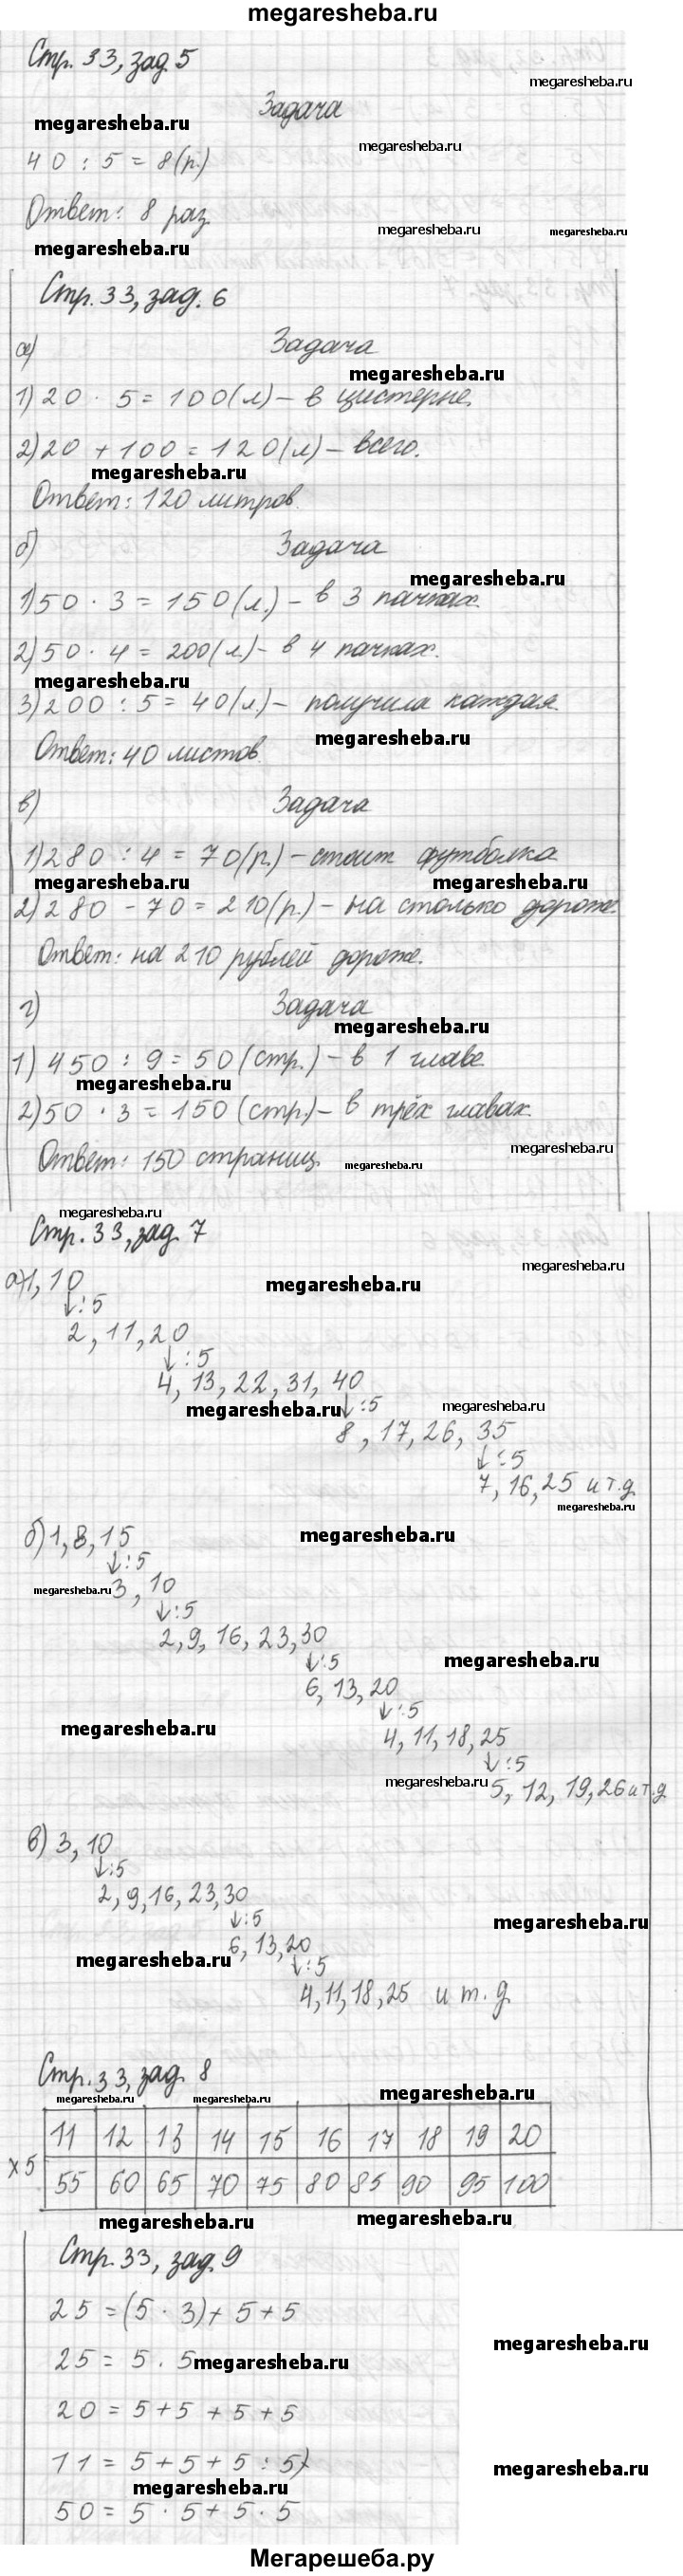 megaresheba.ru
Стр. 33, зад. 5
megaresheba.ru
Задача
megaresheba.ru
megaresheba.ru
40 : 5 = 8(р.)
Ответ: 8 раз
megaresheba.ru
megaresheba.ru
megaresheba.ru
Стр. 33, зад. 6
а) Задача
megaresheba.ru
1) 20 · 5 = 100(л) – в цистерне.
2) 20 + 100 = 120(л) – всего.
megaresheba.ru
Ответ: 120 литров.
б) Задача
megaresheba.ru
1) 50 · 3 = 150(л.) – в 3 пачках.
2) 50 · 4 = 200(л.) – в 4 пачках.
megaresheba.ru
3) 200 : 5 = 40(л.) – получила каждая.
megaresheba.ru
Ответ: 40 листов.
в) Задача
1) 280 : 4 = 70(р.) – стоит футболка
megaresheba.ru megaresheba.ru
2) 280 – 70 = 210(р.) – на столько дороже.
Ответ: на 210 рублей дороже.
г) Задача
megaresheba.ru
1) 450 : 9 = 50 (стр.) – в 1 главе
megaresheba.ru
2) 50 · 3 = 150 (стр.) – в трёх главах.
megaresheba.ru
Ответ: 150 страниц.
megaresheba.ru
megaresheba.ru
Стр. 33, зад. 7
megaresheba.ru
а) 1, 10
megaresheba.ru
↓:5
2, 11, 20
↓:5
4, 13, 22, 31, 40
megaresheba.ru ↓:5 megaresheba.ru
8, 17, 26, 35
↓:5
7, 16, 25 и т.д.
megaresheba.ru
б) 1, 8, 15
megaresheba.ru
↓:5
megaresheba.ru 3, 10
↓:5
2, 9, 16, 23, 30
↓:5
megaresheba.ru
6, 13, 20
↓:5
megaresheba.ru
4, 11, 18, 25
↓:5
megaresheba.ru 5, 12, 19, 26 и т.д
в) 3, 10
↓:5
2, 9, 16, 23, 30
↓:5
megaresheba.ru
6, 13, 20
megaresheba.ru ↓:5
4, 11, 18, 25 и т.д.
Стр. 33, зад. 8
megaresheba.ru megaresheba.ru megaresheba.ru
11 12 13 14 15 16 17 18 19 20
x5 55 60 65 70 75 80 85 90 95 100
megaresheba.ru megaresheba.ru
Стр. 33, зад. 9
25 = (5 · 3) + 5 + 5
megaresheba.ru
25 = 5 · 5 megaresheba.ru
20 = 5 + 5 + 5 + 5
11 = 5 + 5 + 5 : 5)
megaresheba.ru
megaresheba.ru
50 = 5 · 5 + 5 · 5
Мегарешеба.ру